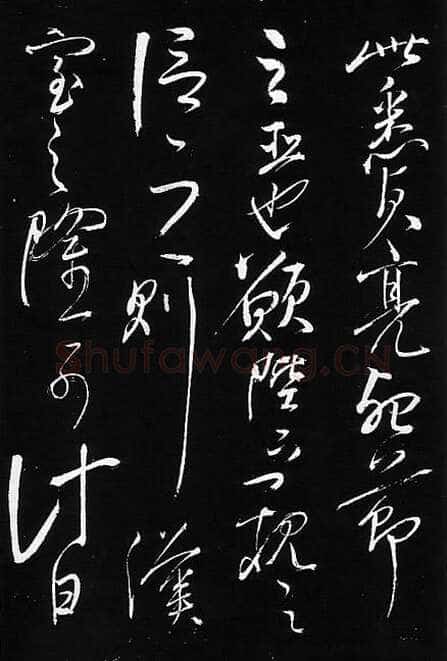 此悉貞亮死節
之臣也願陛下親之
信之則漢
室之隆可計日
Shufawang.CN